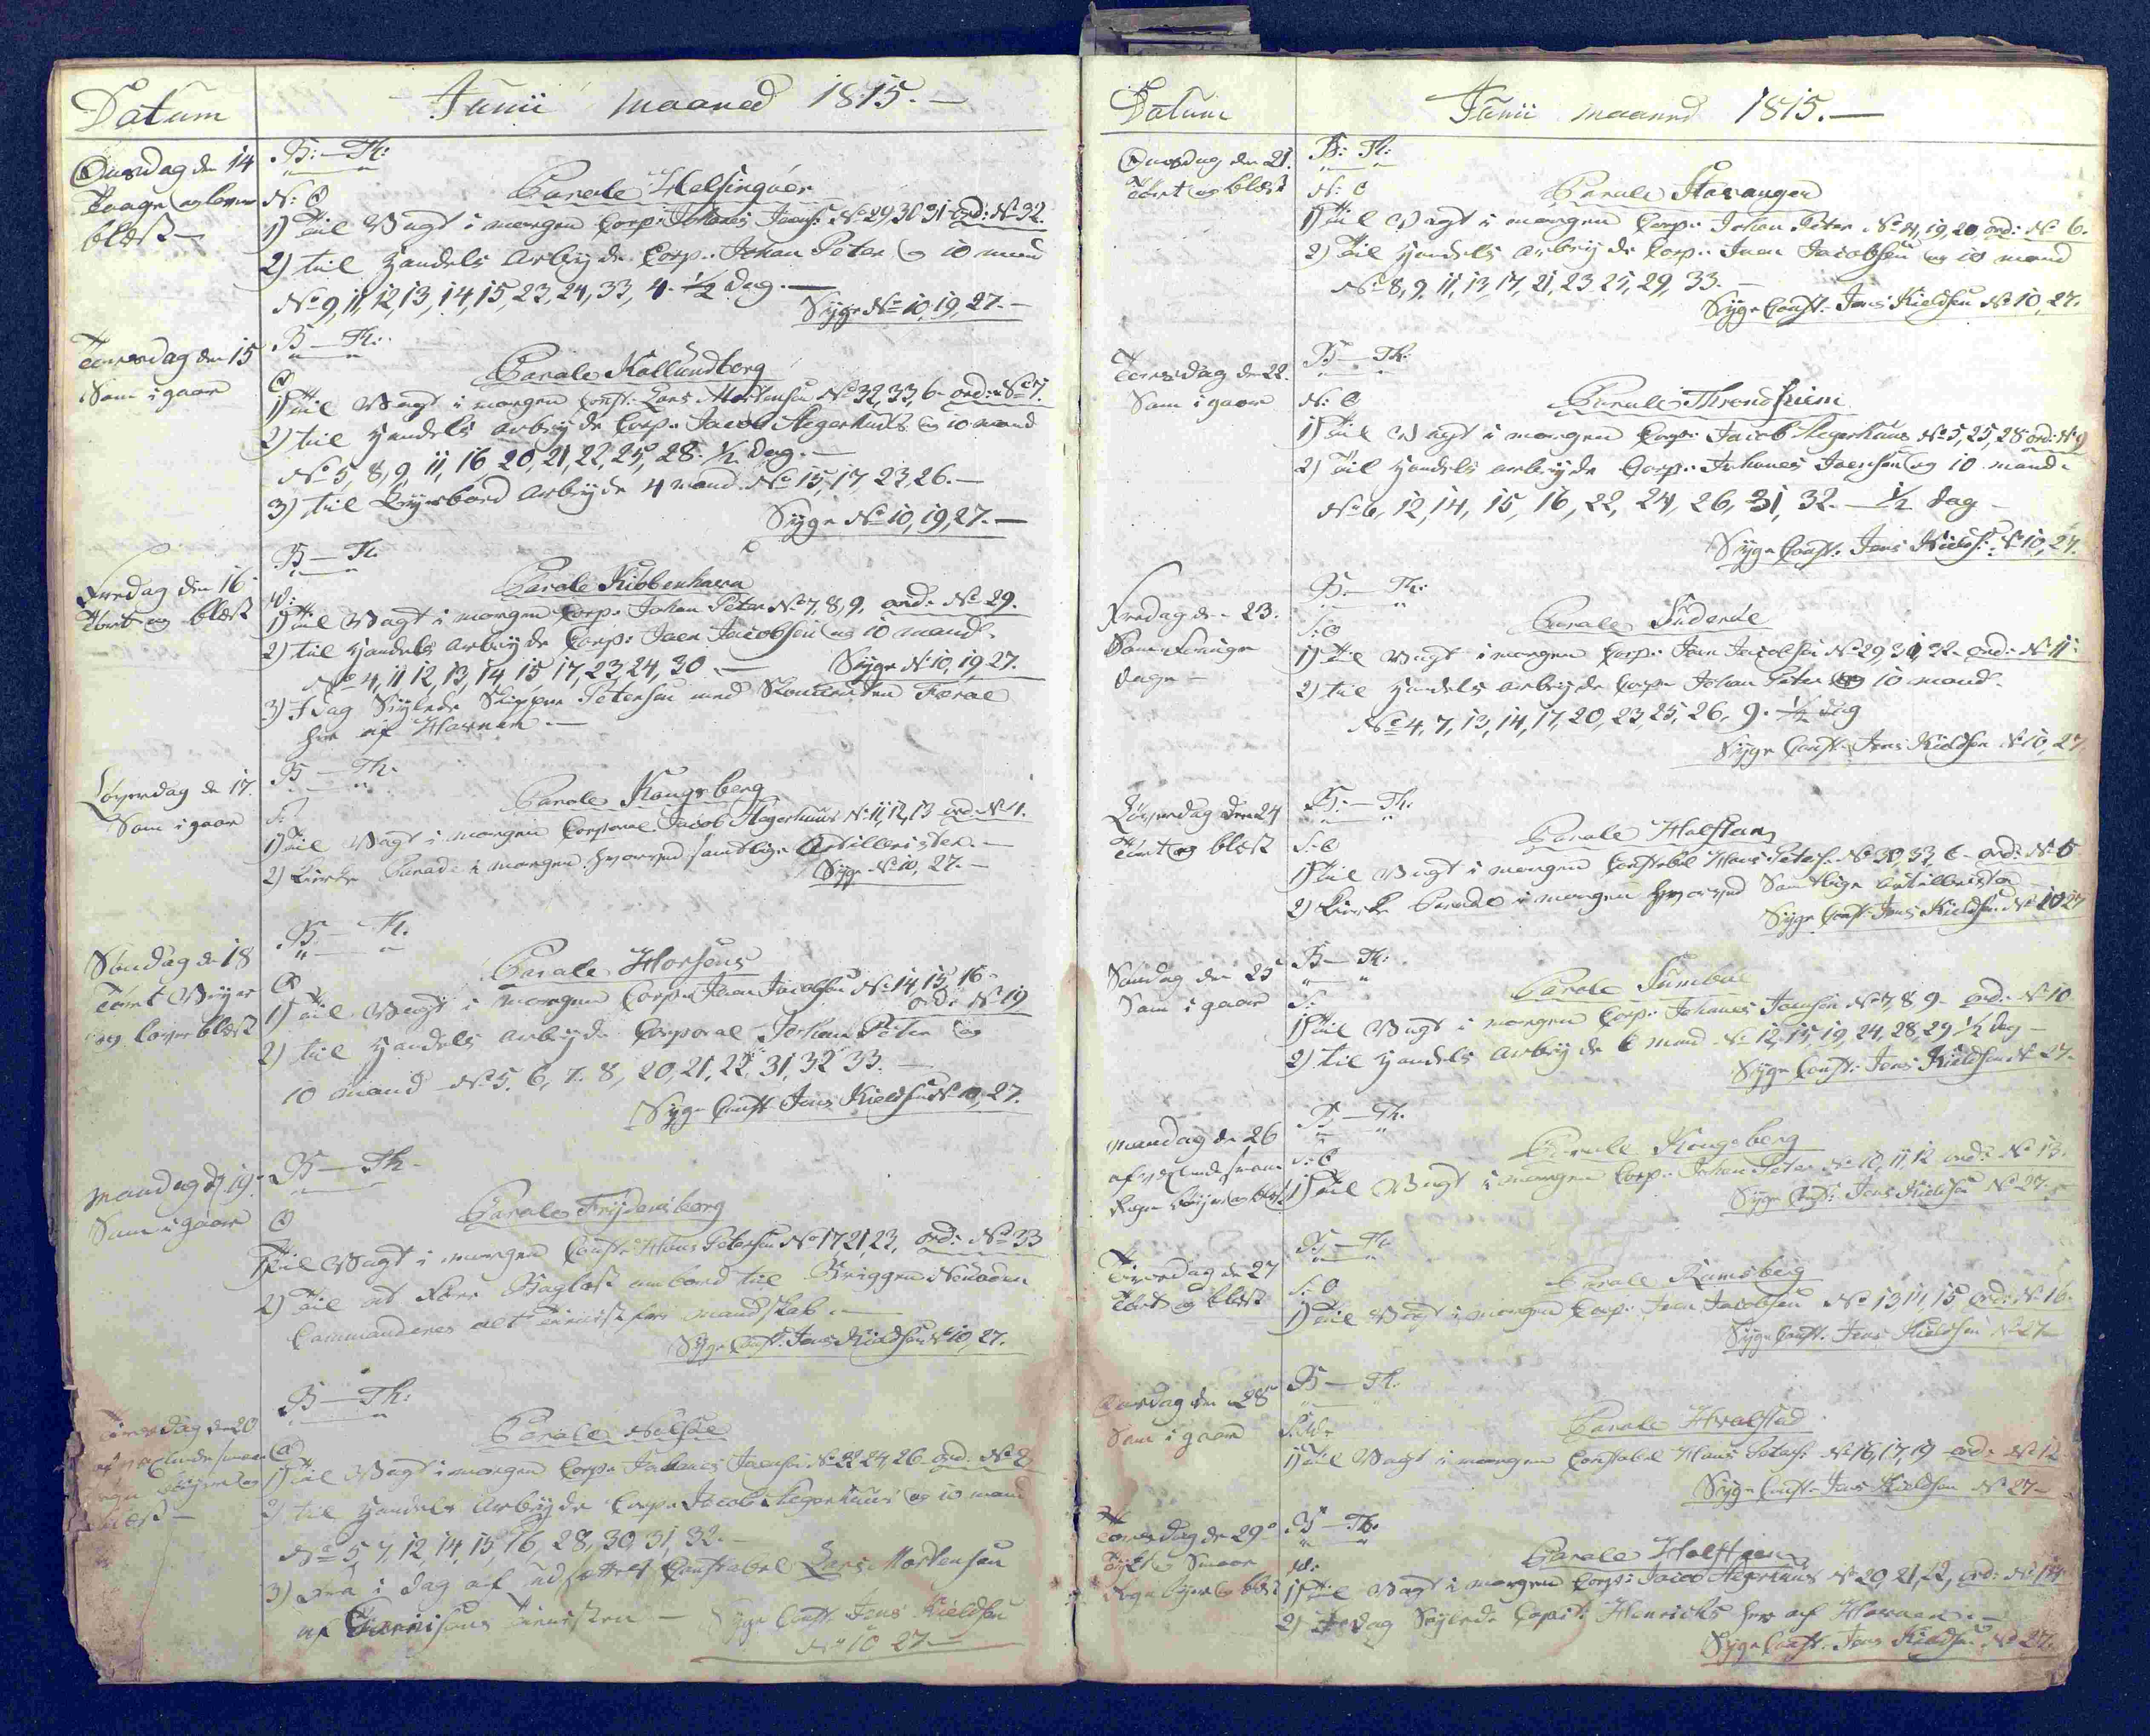 Datum
Junii maaned 1815.-
Onsdag den 14
Taage og laver
blæst-
B:-Th:
N: O
Parole Helsingöer
1) Til Wagt i morgen Corp: Johanes Joens: No 29, 30 31 ord: No 32.
2) til Handels Arbeyde Corp: Johan Peter og 10 mand
No 9, 11, 12, 13, 14, 15, 23, 24, 33, 4. 1/2 dag.-
Syge No 10, 19, 27.-
Torsdag den 15
Som igaar
B-Th:
O
Parole Kallundborg
1) Til Wagt i morgen Const: Lars Mortensen No 32, 33, 6- ord: No 7.
2) til Handels arbeyde Corp: Jacob Hegerhuus og 10 mand
No 5, 8, 9, 11, 16 20, 21, 22, 25, 28. 1/2 Dag.-
3) til arbeyde 4 mand. No 15, 17, 23, 26.-
Syge No 10, 19, 27.-
Fredag den 16
Tört og blæst
B-Th.
W:
Parole Kiöbenhavn
1) Til Wagt i morgen Corp: Johan Peter No 7, 8, 9, ord: No 29.
2) til Handels arbeyde Corp: Joen Jacobsen og 10 mand.
No 4, 11 12, 13, 14, 15 17, 23, 24, 30.- Syge N: 10, 19, 27.
3) I Dag Seylede Skipper Petersen med Skonnerten Færøe
her af Havnen.-
Löverdag de 17.
Som igaar
B-Th.
S:
Parole Kongsberg
1) Til Wagt i morgen Corporal Jacob Hegerhuus No 11, 12, 13 ord: No 4.
2) Kirke Parade i morgen hvorved samtlige Artillerister.-
Syge No 10, 27.-
Söndag de 18
Tört Veyer
og laver blæst
B-Th.
O
Parole Horsens
1) Til Wagt i morgen Corp: Joen Jacobsen No 14 15, 16-
ord: No 19
2) til Handels arbeyde Corporal Johan Peter og
10 mand No 5. 6, 7. 8, 20, 21, 22, 31, 32 33.-
Syge Const: Jens Kieldsen No 10, 27.
Mandag d 19.
Som igaar
B-Th-
O
Parole Frydensborg
1) Til Wagt i morgen Const: Hans Petersen No 17, 21, 23, ord: No 33
2) Til at före Baglast ombord til Briggen
Commanderes alt tienistfri mandskab.-
Syge Const: Jens Kieldsen No 10, 27.
Tirsdag den 20
B-Th:
O
Parole Nolsöe
1) Til Wagt i morgen Corp: Johanes Joensen No 22 24, 26 ord: No 2
2) til Handels Arbeyde Corp: Jacob Hegerhuus og 10 mand
No 5, 7, 12, 14, 15, 16, 28, 30, 31, 32.-
3) Fra i Dag af udsættes Constabel Lars Mortensen
af Garnisons tienisten- Syge Const: Jens Kieldsen
No 10 27-
Datum
Junii maaned 1815.-
Onsdag den 21.
Tört og blæst
B: Th:
N: O
Parole Stavanger
1) Til Wagt i morgen Corp: Johan Peter No 4, 19, 20 ord: No 6.
2) Til Handels arbeyde Corp: Joen Jacobsen og 10 mand
No 8, 9, 11, 13, 17, 21, 23 25, 29, 33.-
Syge Const: Jens Kieldsen No 10, 27.
Torsdag de 22.
Som igaar
B-Th:
N: O
Parole Throndhiem
1) Til Wagt i morgen Corp: Jacob Hegerhuus No 5, 25, 28 ord: No 9
2) Til Handels arbeyde Corp: Johanes Joensen og 10 mand:
No 6, 12, 14, 15, 16, 22, 24, 26, 31, 32.- 1/2 dag-
Syge Const: Jens Kields: No 10, 27.
Fredag de- 23.
Som Forrige
dage-
B-Th:
S: O
Parole Süderöe
1) Til Wagt i morgen Corp: Joen Jacobsen No 29, 31, 32- ord: No 11:
2) til Handels arbeyde Corp: Johan Peter og 10 mand.
No 4, 7, 13, 14, 17, 20, 23, 25, 26, 9. 1/2 dag
Syge Const: Jens Kieldsen No 10, 27
Löverdag den 24
Tört og blæst
B:-Th:
S: O
Parole Holsten
1) Til Wagt i morgen Constabel Hans Peters: No 30, 33, 6- ord: No 5
2) Kirke Parade i morgen hvorved Samtlige artillerister
Syge Const: Jens Kieldsen No 10 27
Söndag den 25
Som igaar
B-Th:
S:
Parole Sumböe
1) Til Wagt i morgen Corp: Johanes Joensen No 7, 8 9- ord: No 10
2) til Handels Arbeyde 6 mand No 12, 15, 19, 24, 28, 29 1/2 dag-
Syge Const: Jens Kieldsen No 27-
Mandag de 26
B-Th.
S: O
Parole Kongsberg
1) Til Wagt i morgen Corp: Johan Peter No 10, 11, 12 ord: No 13.
Syge Const: Jens Kieldsen No 27.-
Tirsdag de 27
Tört og blæst
B-Th
S: O
Parole Ramsberg
1) Til Wagt i morgen Corp: Joen Jacobsen No 13 14, 15 ord: No 16.
Syge Const: Jens Kieldsen No 27-
Onsdag den 28
Som igaar
B-Th.
Parole Hvalstad
1) Til Wagt i morgen Constabel Hans Peters: No 16, 17, 19- ord: No 12
Syge Const: Jens Kieldsen No 27-
Torsdag de 29
B-Th:
W:
Parole
1) Til Wagt i morgen Corp: Jacob Hegerhuus No 20, 21, 22, ord: No
2) I dag Seylede Capit: Henricks her af Havnen.-
Syge Const: Jens Kieldsen No 27.